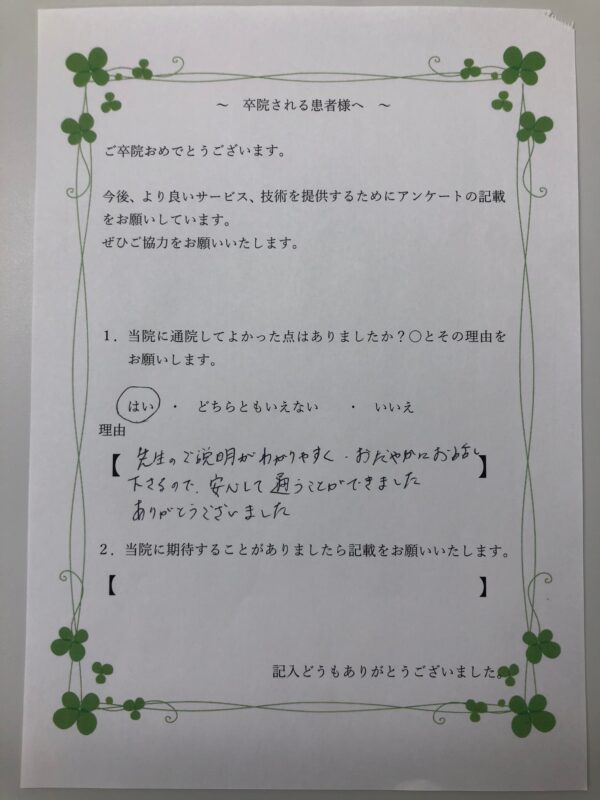 ～　卒院される患者様へ　～
ご卒院おめでとうございます。
今後、より良いサービス、技術を提供するためにアンケートの記載
をお願いしています。
ぜひご協力をお願いいたします。
１．当院に通院してよかった点はありましたか？〇とその理由を
お願いします。
はい　・　どちらともいえない　・　いいえ
理由
【 先生のご説明がわかりやすく、おだやかにお話し 】
下さるので、安心して通うことができました
ありがとうございました
２．当院に期待することがありましたら記載をお願いいたします。
【　】
記入どうもありがとうございました。